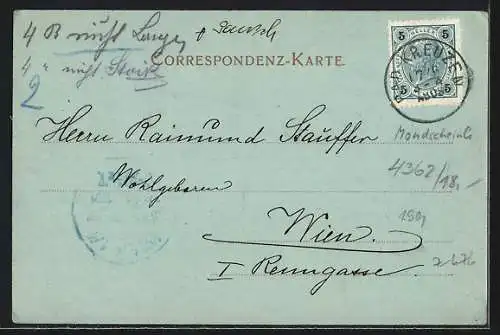 4 B nicht Lange
4 " nicht Stoiß
2
CORRESPONDENZ-KARTE.
5 HELLER 5
BAD KREUZEN
5 5
Herrn Raimund Stauffer
Mondschein
Wohlgeboren
4362/18,-
Wien.
I Renngasse